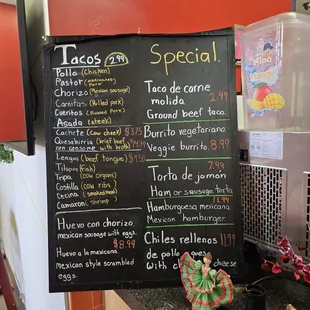 Tacos 2.99
Pollo (Chicken)
Pastor
Chorizo (Mexican sausage)
Carnitas (Rolled pork)
Cueritos (Pork)
Asada (steak)
Cachete (Cow cheek) $3.75
Quesabirria (brief beef
con consome with broth)
Lengua (beef tongue) $4.50
Tilapia (Fish)
Tripa (Cow organs)
Costilla (Cow ribs)
Cecina
Camaron (shrimp)
Huevo con chorizo
mexican sausage with eggs.
$8.99
Huevo a la mexicana
Mexican style scrambled
eggs.
Special.
Taco de carne
molida 2.49
Ground beef taco.
Burrito vegetariano
Veggie burrito. 8.99
7.99
Torta de jamon
Ham or sausage torta
11.99
Hamburguesa mexicana
Mexican hamburger
Chiles rellenos 11.99
de pollo queso
With cheese